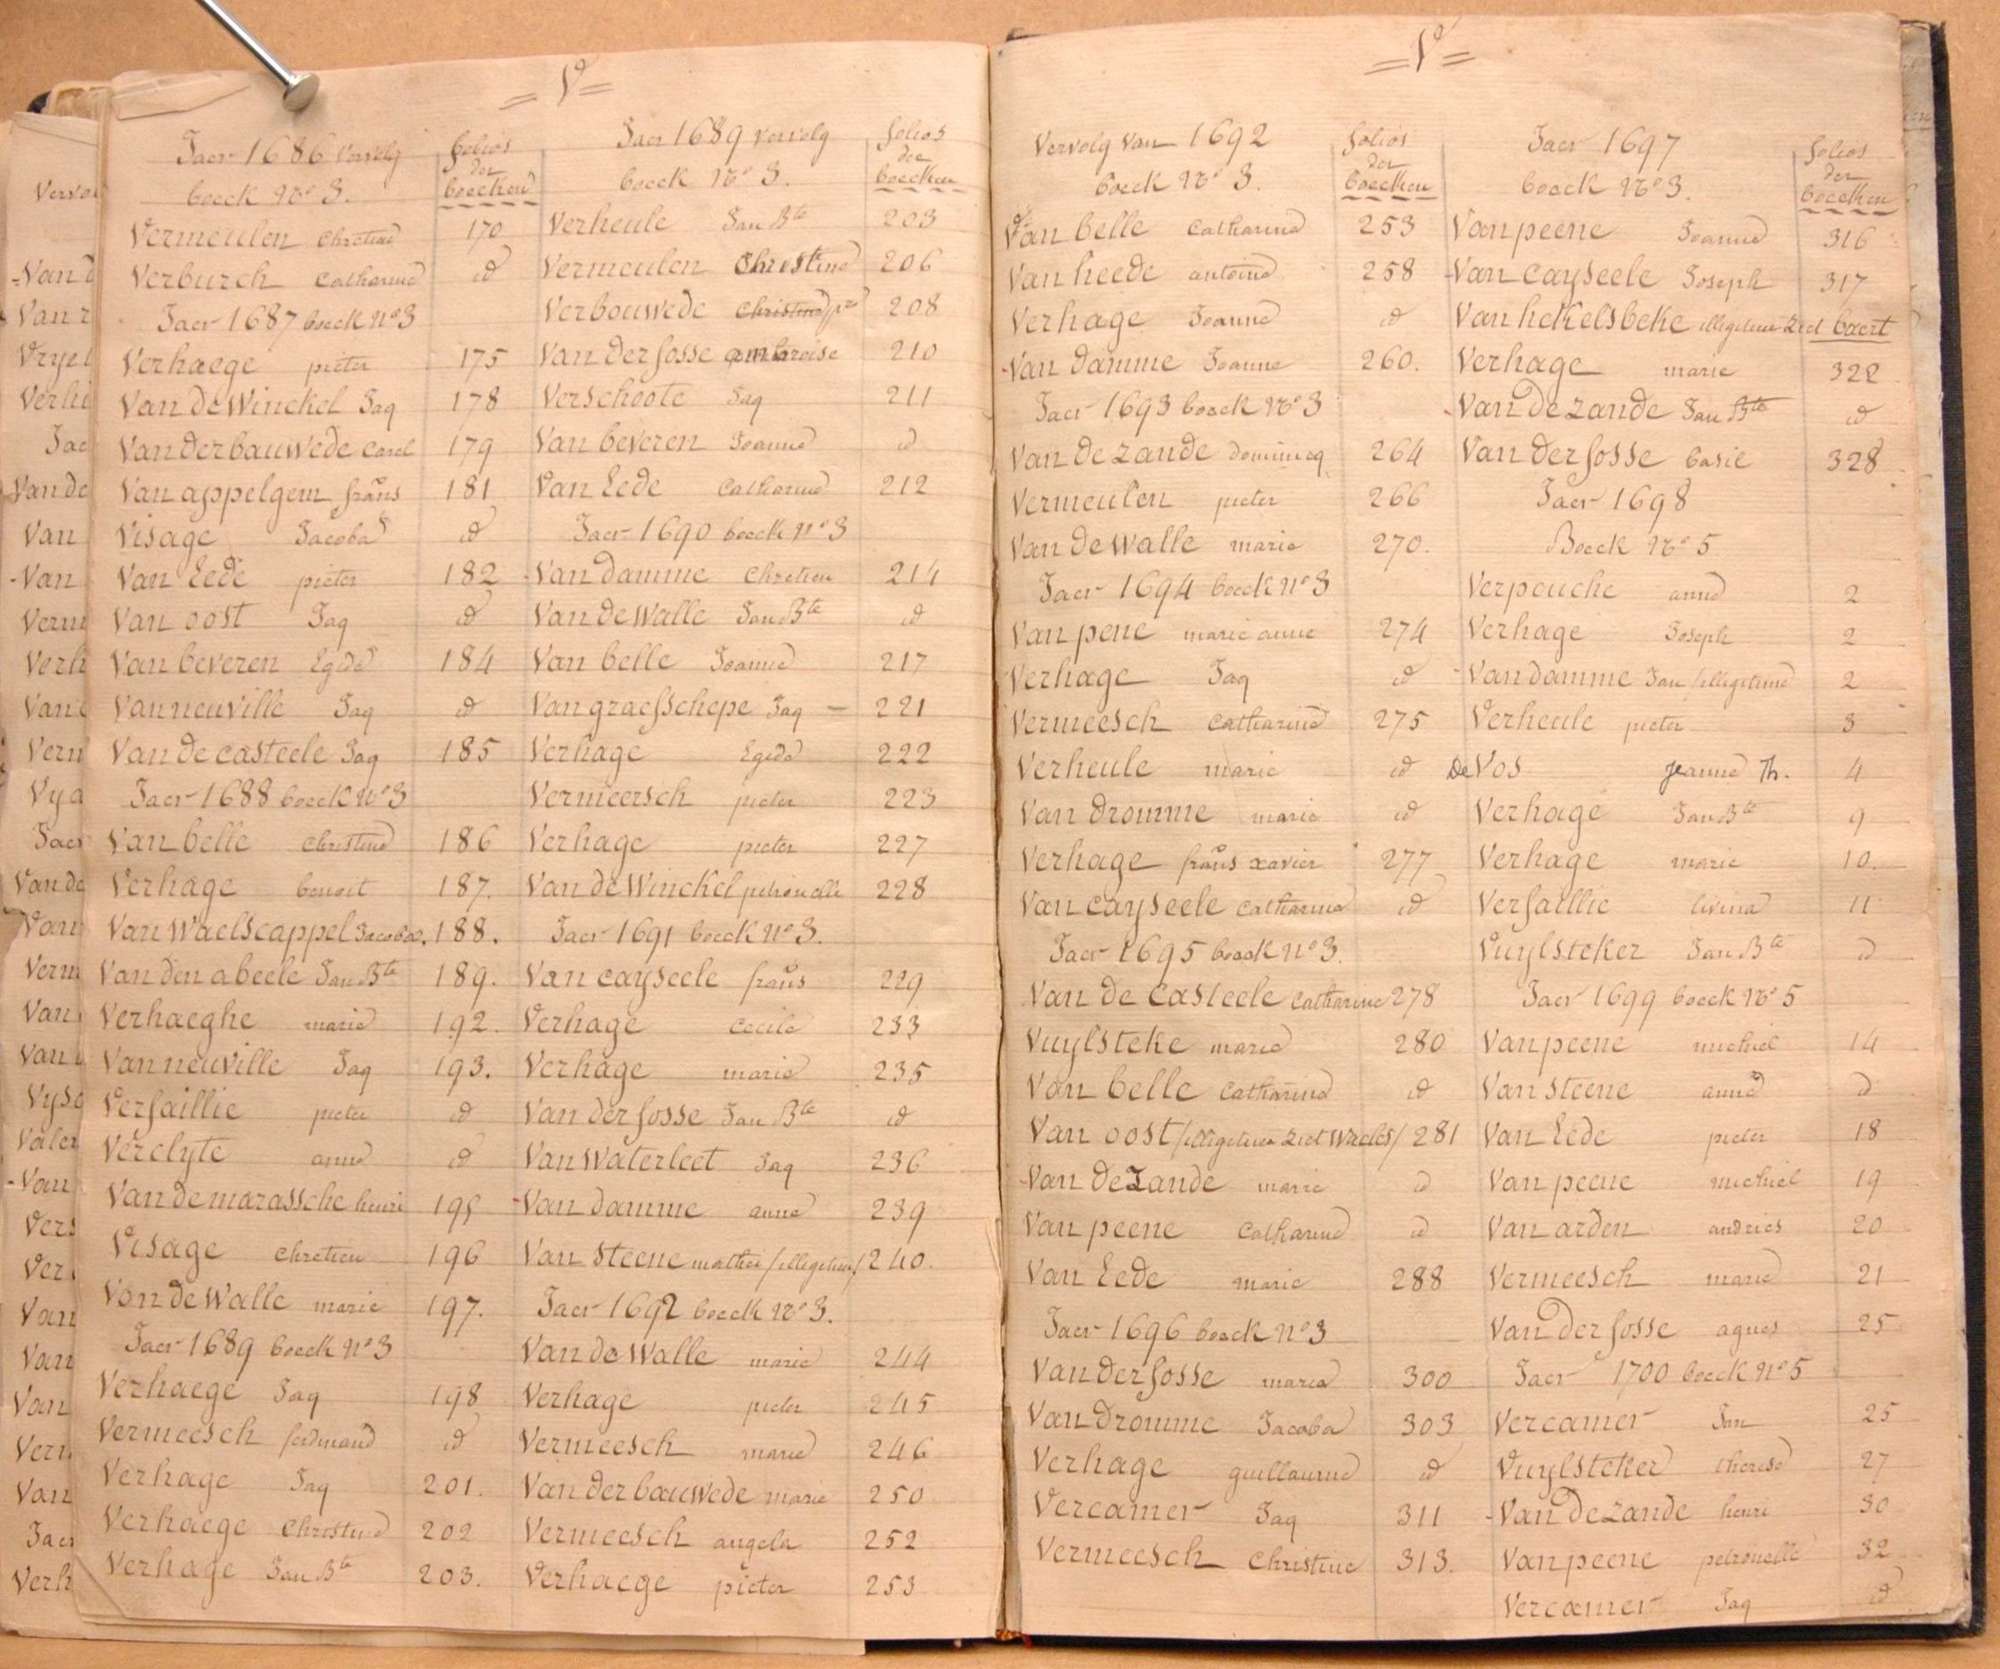 = V° =
Jaer 1686 vervolg
boeck N.° 3.
folios
der
boecken
Vermeulen Chretine 170
Verburch Catharine id
Jaer 1687 boeck N° 3
Verhaege pieter 175
Van De Winckel Jaq 178
Van Der bauwede Carel 179
Van appelgem frans 181
Visage Jacoba id
Van Eede pieter 182
Van oost Jaq id
Van beveren Egide 184
Van neuville Jaq id
Van De casteele Jaq 185
Jaer 1688 boeck N° 3
Van belle Christine 186
Verhage benoit 187.
Van Waelscappel Jacoba. 188.
Van den abeele Jan Bte 189.
Verhaeghe marie 192.
Van neuville Jaq 193.
Verfaillie pieter id
Verclyte anne id
Van demarassche henri 195
Visage Chretien 196
Van De Walle marie 197.
Jaer 1689 boeck N° 3
Verhaege Jaq 198
Vermeesch ferdinand id
Verhage Jaq 201.
Verhaege Christine 202
Verhage Jan Bte 203.
Jaer 1689 vervolg
boeck N.° 3.
folios
der
boecken
Verheule Jan Bte 203
Vermeulen Christine 206
Verbouwede 208
Van Der fosse ambroise 210
Verschoote Jaq 211
Van beveren Joanne id
Van Eede Catharine 212
Jaer 1690 boeck N° 3
- Van Damme Chretien 214
Van De Walle Jan Bte id
Van belle Joanne 217
Van graefschepe Jaq - 221
Verhage Egide 222
Vermeersch pieter 223
Verhage pieter 227
Van De Winckel petronelle 228
Jaer 1691 boeck N° 3.
Van cayseele frans 229
Verhage Cecile 233
Verhage marie 235
Van der fosse Jan Bte id
Van Waterleet Jaq 236
- Van Damme anne 239
Van Steene /illegitime/ 240.
Jaer 1692 boeck N.° 3.
Van De Walle marie 244
Verhage pieter 245
Vermeesch marie 246
Van der bauwede marie 250
Vermeesch angela 252
Verhaege pieter 253
= V° =
Vervolg Van 1692
boeck N.° 3.
folios
der
boecken
Van belle Catharine 253
Van heede antoine 258
Verhage Joanne id
- Van Damme Joanne 260.
Jaer 1693 boeck N.° 3
Van De zande dominicq 264
Vermeulen pieter 266
Van De Walle marie 270.
Jaer 1694 boeck N° 3
Van pene marie anne 274
Verhage Jaq id
Vermeesch Catharine 275
Verheule marie id
Van Dromme marie id
Verhage frans xavier 277
Van cayseele Catharine id
Jaer 1695 boeck N° 3.
Van De Casteele Catharine 278
Vuylsteke marie 280
Van belle Catharine id
Van oost /illegitime ziet Waeles/ 281
- Van De Zande marie id
Van peene Catharine id
Van Eede marie 288
Jaer 1696 boeck N° 3
Van Der fosse marie 300
Van Dromme Jacoba 303
Verhage guillaume id
Vercamer Jaq 311
Vermeesch Christine 313.
Jaer 1697
boeck N.° 3.
folios
der
boecken
Van peene Joanne 316
- Van cayseele Joseph 317
Van hekelsbeke illegitime ziet baert
Verhage marie 322
- Van De zande Jan Bte id
Van Der fosse basile 328
Jaer 1698
Boeck N.° 5
Verpouche anne 2
Verhage Joseph 2
- Van damme Jan /illegitime 2
Verheule pieter 3
De Vos Jeanne Th. 4
Verhage Jan Bte 9
Verhage marie 10.
Verfaillie livina 11
Vuylsteker Jan Bte id
Jaer 1699 boeck N.° 5
Van peene michiel 14
Van Steene anne id
Van Eede pieter 18
Van peene michiel 19
Van arden andries 20
Vermeesch marie 21
Van Der fosse agnes 25
Jaer 1700 boeck N° 5
Vercamer Jan 25
Vuylsteker therese 27
- Van De zande henri 30
Van peene petronelle 32
Vercamer Jaq id